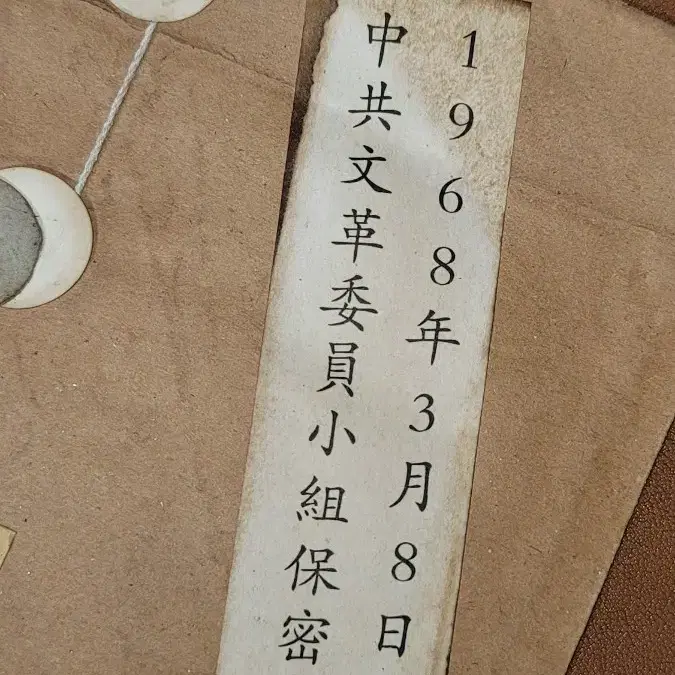 1968年3月8日
中共文革委員小組保密